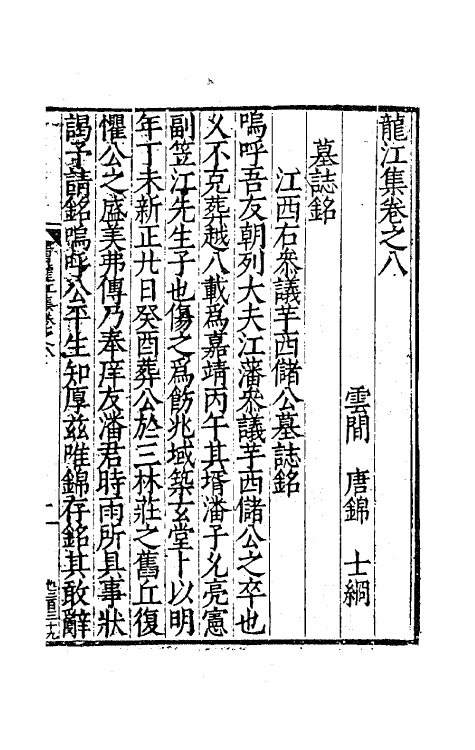 龍江集卷之八
雲間　唐錦　士綱
墓誌銘
江西右叅議芋西儲公墓誌銘
嗚呼吾友朝列大夫江藩叅議芋西儲公之卒也
乂不克葬越八載爲嘉靖丙午其壻潘子允亮憲
副笠江先生子也傷之爲飭兆域築玄堂卜以明
年丁未新正廿日癸酉葬公於三林莊之舊丘復
懼公之盛美弗傳乃奉庠友潘君時雨所具事狀
謁予請銘嗚呼公平生知厚茲唯錦存銘其敢辭